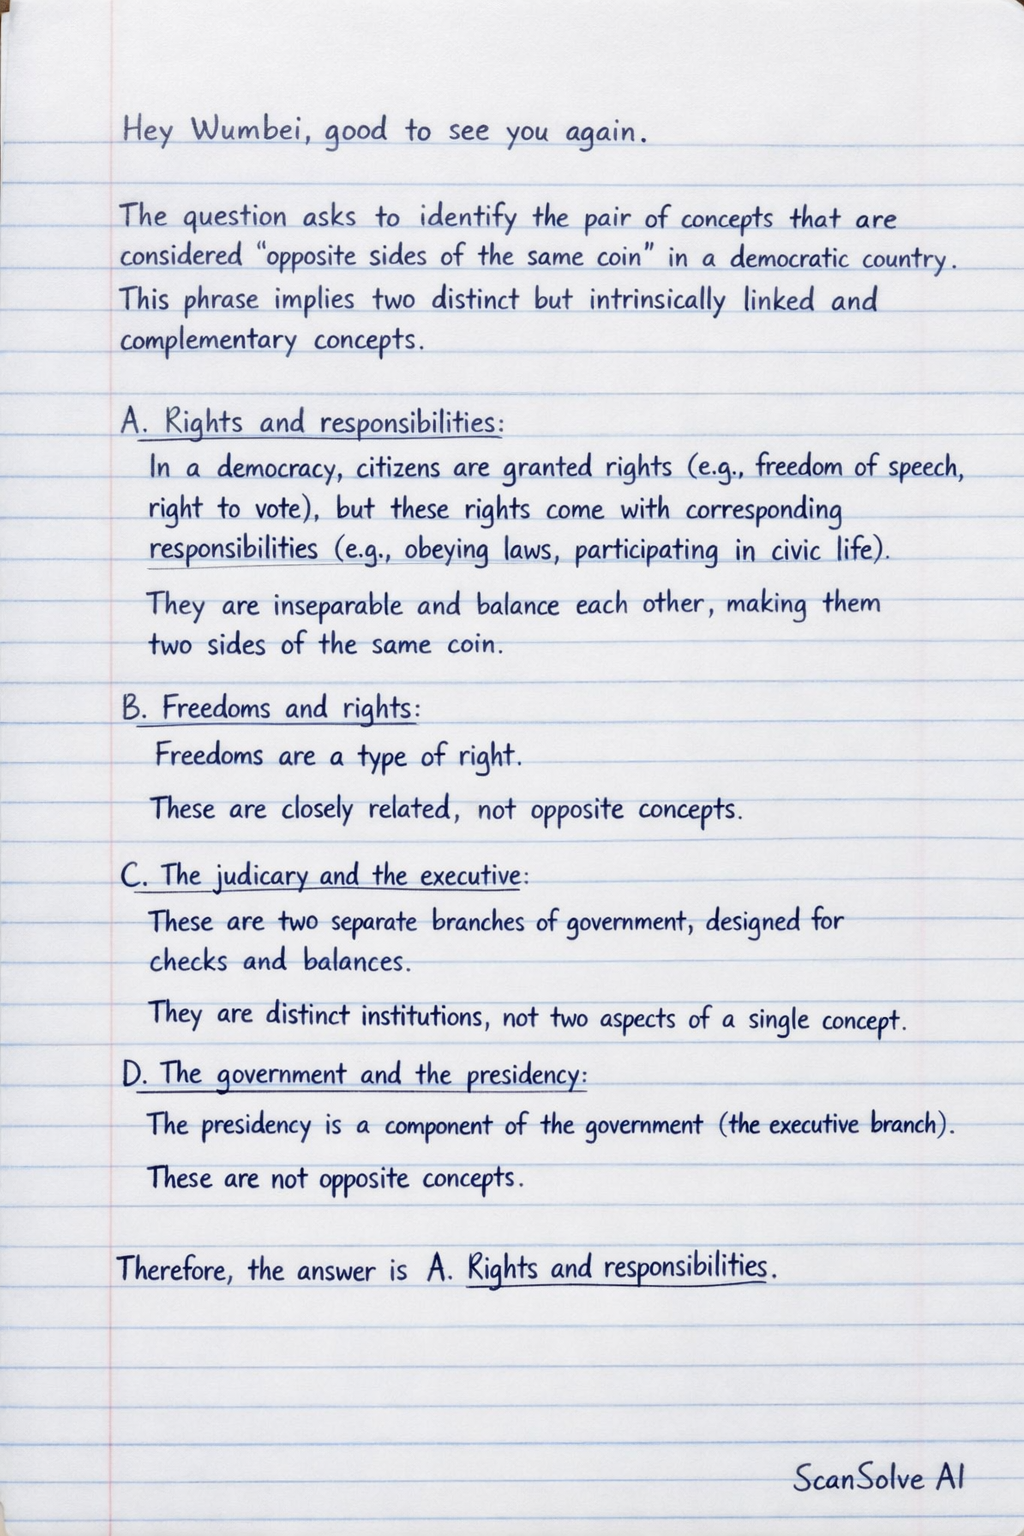 Hey Wumbei, good to see you again.
The question asks to identify the pair of concepts that are
considered “opposite sides of the same coin” in a democratic country.
This phrase implies two distinct but intrinsically linked and
complementary concepts.
A. Rights and responsibilities:
In a democracy, citizens are granted rights (e.g., freedom of speech,
right to vote), but these rights come with corresponding
responsibilities (e.g., obeying laws, participating in civic life).
They are inseparable and balance each other, making them
two sides of the same coin.
B. Freedoms and rights:
Freedoms are a type of right.
These are closely related, not opposite concepts.
C. The judicary and the executive:
These are two separate branches of government, designed for
checks and balances.
They are distinct institutions, not two aspects of a single concept.
D. The government and the presidency:
The presidency is a component of the government (the executive branch).
These are not opposite concepts.
Therefore, the answer is A. Rights and responsibilities.
ScanSolve AI